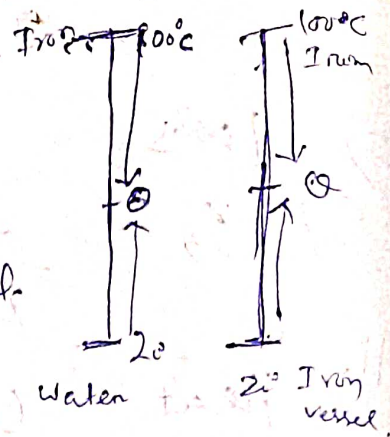 Iron 100°C
100°C
Iron
θ
θ
20
Water
20° Iron
vessel